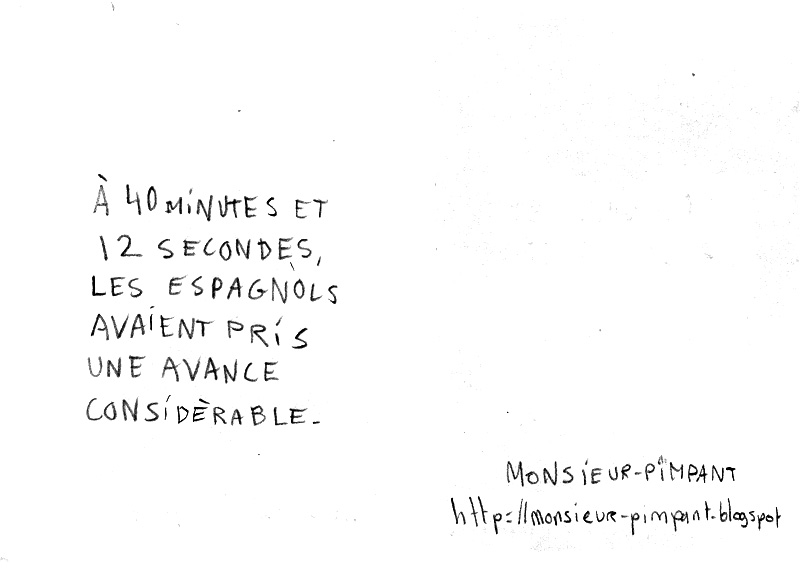 À 40 MINUTES ET
12 SECONDES,
LES ESPAGNOLS
AVAIENT PRIS
UNE AVANCE
CONSIDÈRABLE.
MONSIEUR-PIMPANT
http://monsieur-pimpant.blogspot